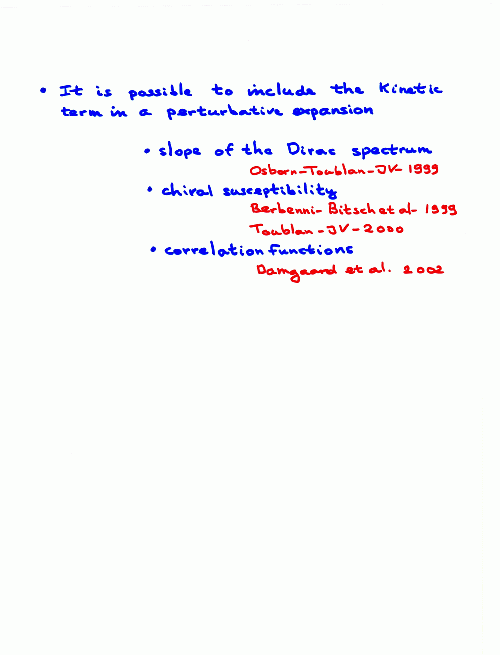 • It is possible to include the Kinetic
term in a perturbative expansion
• slope of the Dirac spectrum
Osborn-Toublan-JV-1999
• chiral susceptibility
Berbenni-Bitsch et al-1999
Toublan-JV-2000
• correlation functions
Damgaard et al. 2002